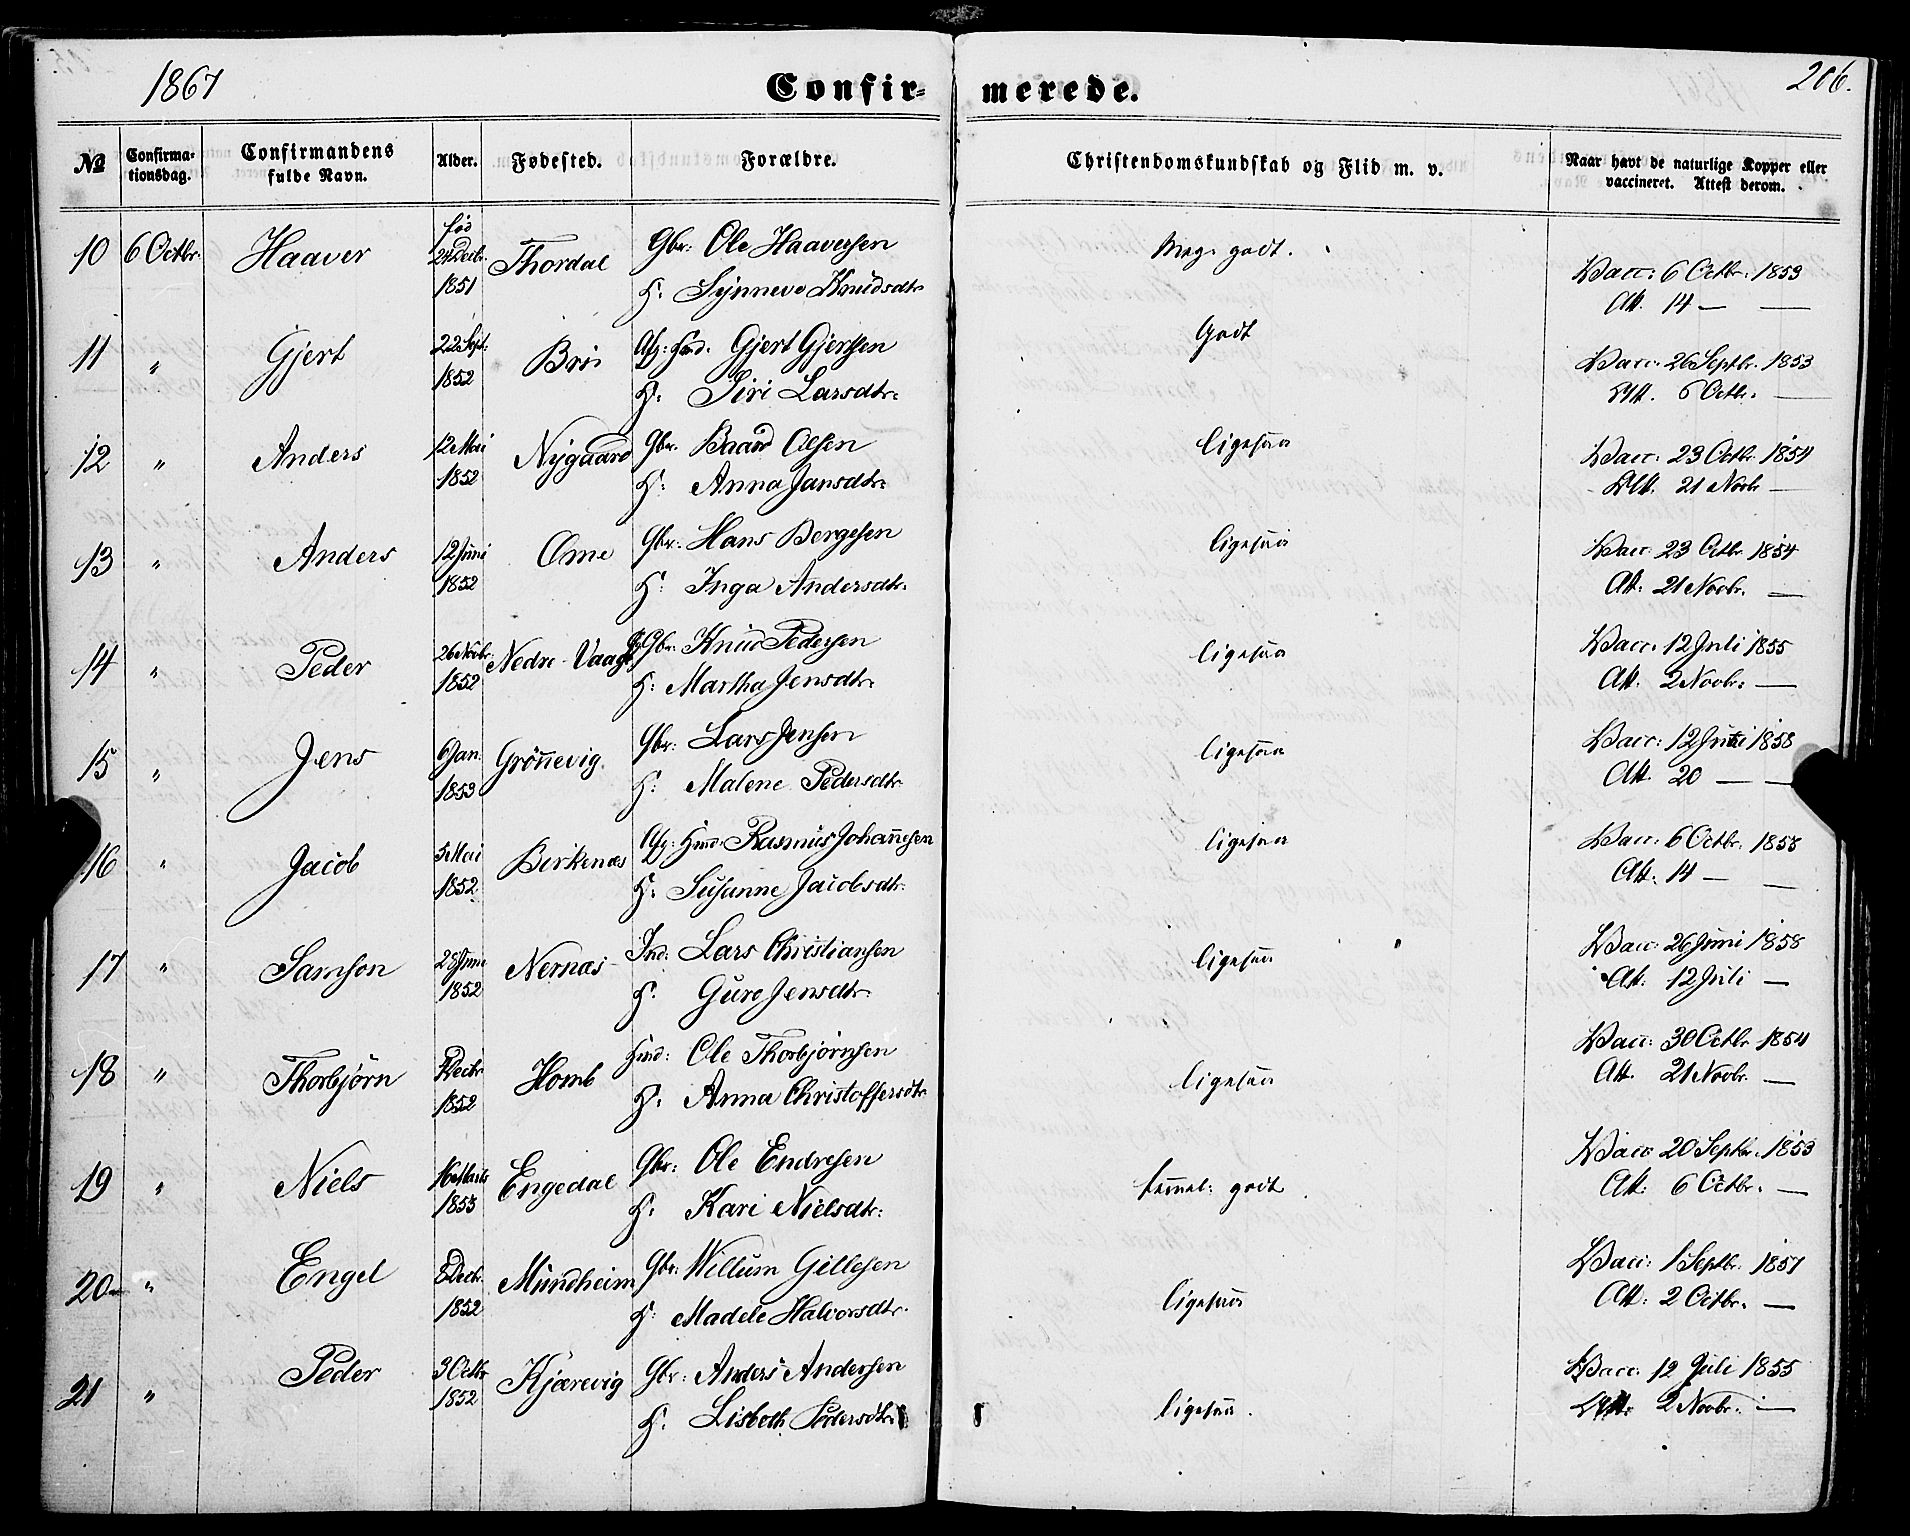 1867 Confir- merede. 206.
№ Confirma-tionsdag. Confirmandens fulde Navn. Alder. Fødested. Forældre. Christendomskundskab og Flid m. v. Naar havt de naturlige Kopper eller vaccineret. Attest derom.
10 6 Octbr. Haaver fød 24 Decbr. 1851 Thordal Gbr: Ole Haaversen Meg: godt. Vacc: 6 Octbr: 1853
H: Synneve Knudsdtr Att. 14 — —
11 " Gjert 22 Sept: 1852 Bru Afg: Hmd. Gjert Gjertsen Godt Vacc: 26 Septbr. 1853
H: Siri Larsdtr: Att. 6 Octbr. —
12 " Anders 12 Mai 1852 Nygaard Gbr. Baard Olsen Ligesaa Vacc: 23 Octbr 1854
H: Anna Jansdtr: Att. 21 Novbr —
13 " Anders 12 Juni 1852 Ome Gbr: Hans Bergesen Ligesaa Vacc: 23 Octbr 1854
H: Inga Andersdtr. Att: 21 Novbr. —
14 " Peder 26 Novbr. 1852 Nedre-Vaage Gbr: Knud Pedersen Ligesaa Vacc: 12 Juli 1855
H: Martha Jensdtr: Att. 2 Novbr: —
15 " Jens 6 Jan. 1853 Grönevig. Gbr: Lars Jensen Ligesaa Vacc: 12 Juli 1858
H: Malene Pedersdtr. Att. 20 — —
16 " Jacob 5 Mai 1852 Birkenæs Afg: Hmd: Rasmus Johannesen Ligesaa Vacc: 6 Octbr. 1858
H: Susanne Jacobsdtr: Att: 14 — —
17 " Samson 28 Juni 1852 Nernæs Ind: Lars Christiansen Ligesaa Vacc: 26 Juni 1858
H: Guro Jensdtr: Att: 12 Juli —
18 " Thorbjörn Decbr 1852 Homb Hmd: Ole Thorbjörnsen Ligesaa Vacc: 30 Octbr 1854
H: Anna Christoffersdtr. Att. 21 Novbr. —
19 " Niels 16 Marts 1853 Engedal Gbr: Ole Endresen temmel: godt Vacc 20 Septbr. 1853
H: Kari Nielsdtr: Att: 6 Octbr. —
20 " Engel 8 Decbr. 1852 Mundheim Gbr: Willum Gillesen Ligesaa Vacc: 1 Septbr. 1857
H: Madele Halvorsdtr. Att: 2 Octbr. —
21 " Peder 3 Octbr 1852 Kjærevig Gbr: Anders Andersen Ligesaa. Vacc: 12 Juli 1855
H: Lisbeth Pedersdtr: Att: 2 Novbr. —